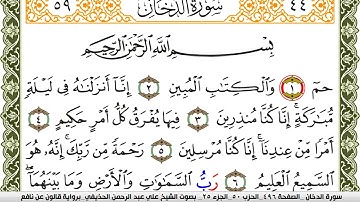 ٤٤ سُورَةُ الدُّخَانِ ٥٩
بِسْمِ اللَّهِ الرَّحْمَٰنِ الرَّحِيمِ
حمٓ ١ وَالْكِتَابِ الْمُبِينِ ٢ إِنَّا أَنزَلْنَاهُ فِي لَيْلَةٍ
مُّبَارَكَةٍ إِنَّا كُنَّا مُنذِرِينَ ٣ فِيهَا يُفْرَقُ كُلُّ أَمْرٍ حَكِيمٍ ٤
أَمْرًا مِّنْ عِندِنَا إِنَّا كُنَّا مُرْسِلِينَ ٥ رَحْمَةً مِّن رَّبِّكَ إِنَّهُ هُوَ
السَّمِيعُ الْعَلِيمُ ٦ رَبُّ السَّمَٰوَٰتِ وَالْأَرْضِ وَمَا بَيْنَهُمَا
سورة الدخان . الصفحة ٤٩٦ . الحزب ٥٠ . الجزء ٢٥ . بصوت الشيخ علي عبد الرحمن الحذيفي . برواية قالون عن نافع